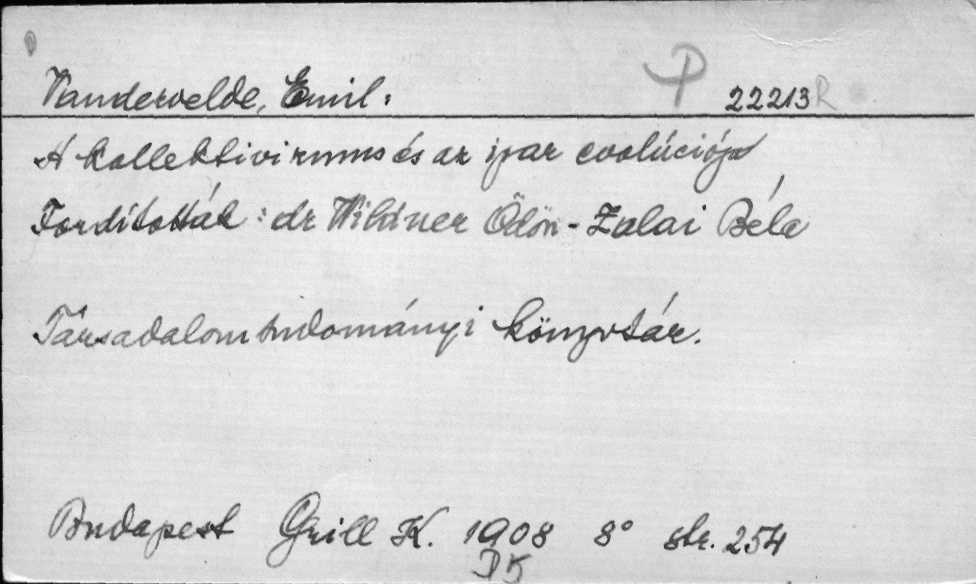 P
Vandervelde, Emil. 22213 R
A kollektivizmus és az ipar evolúciója
Fordították: dr Wildner Ödön - Zalai Béla
Társadalomtudományi könyvtár.
Budapest Grill K. 1908 8° str. 254